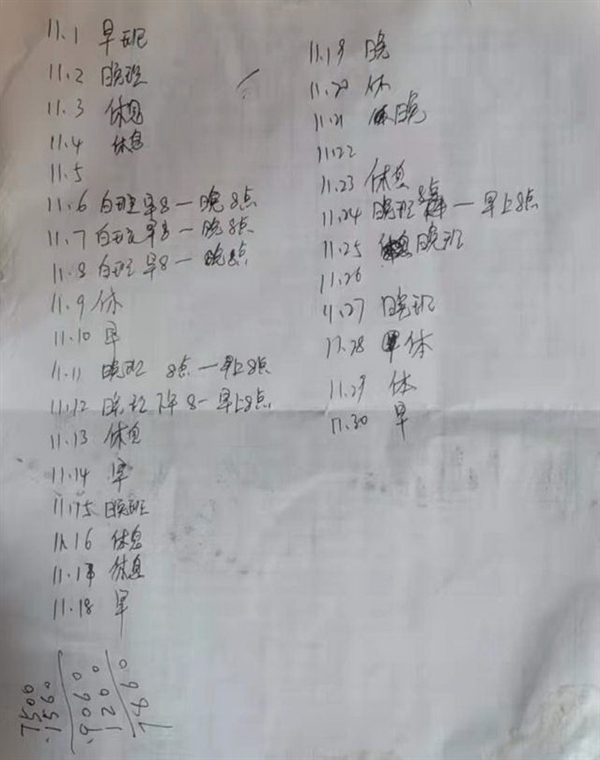 11.1 早班
11.2 晚班
11.3 休息
11.4 休息
11.5
11.6 白班早8—晚8点
11.7 白班早8—晚8点
11.8 白班早8—晚8点
11.9 休
11.10 早
11.11 晚班 8点—早上8点
11.12 晚班下午8—早上8点
11.13 休息
11.14 早
11.15 晚班
11.16 休息
11.17 休息
11.18 早
11.19 晚
11.20 休
11.21 晚
11.22
11.23 休息
11.24 晚班8点—早上8点
11.25 晚班
11.26
11.27 晚班
11.28 休
11.29 休
11.30 早